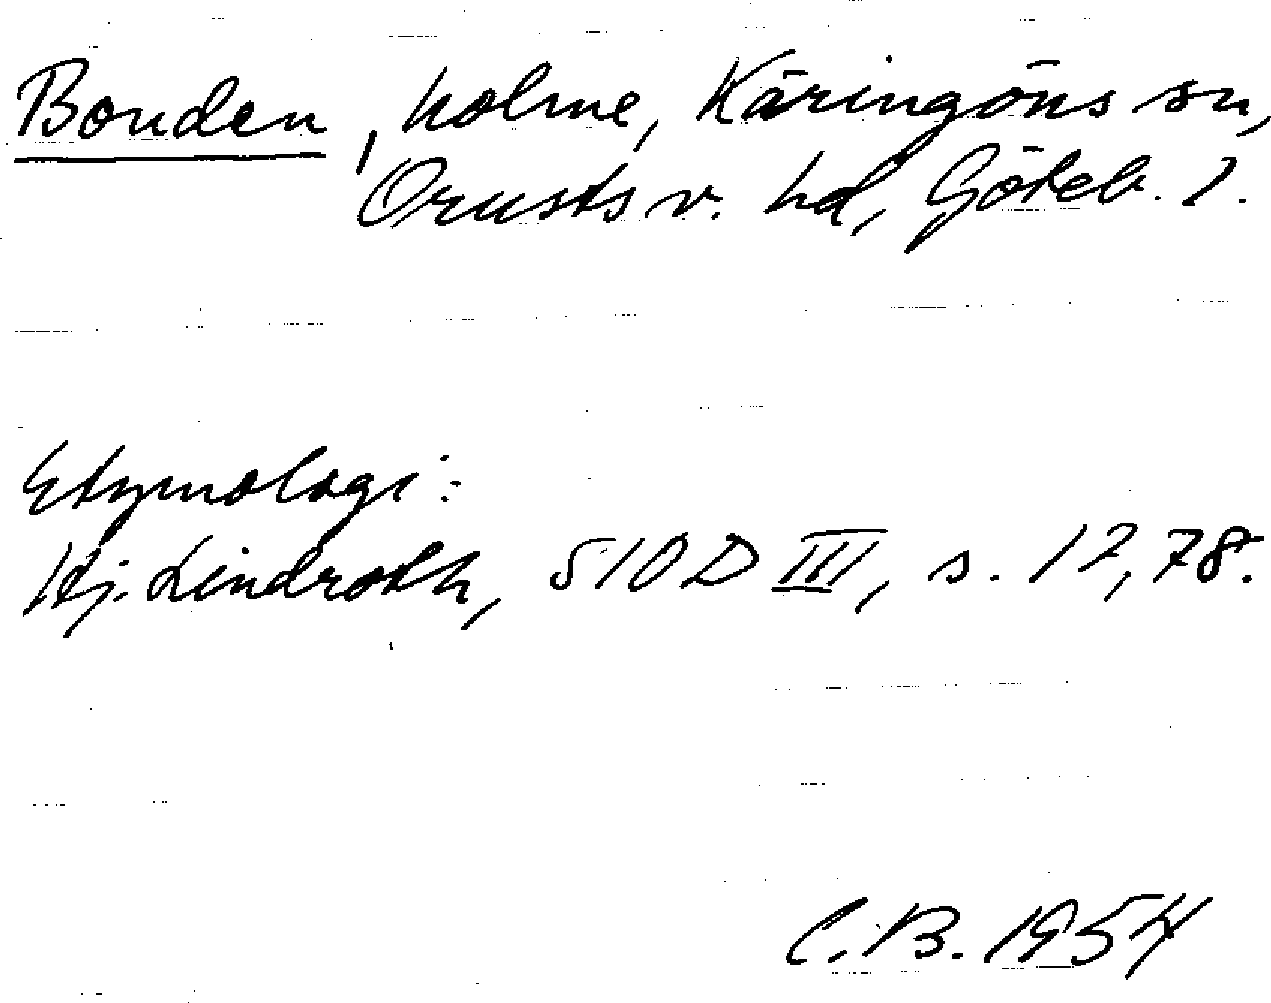 Bonden, holme, Käringöns sn,
Orusts v. hd, Göteb. l.
Etymologi:
Hj. Lindroth, SIOD III, s. 12, 78.
C.B. 1954